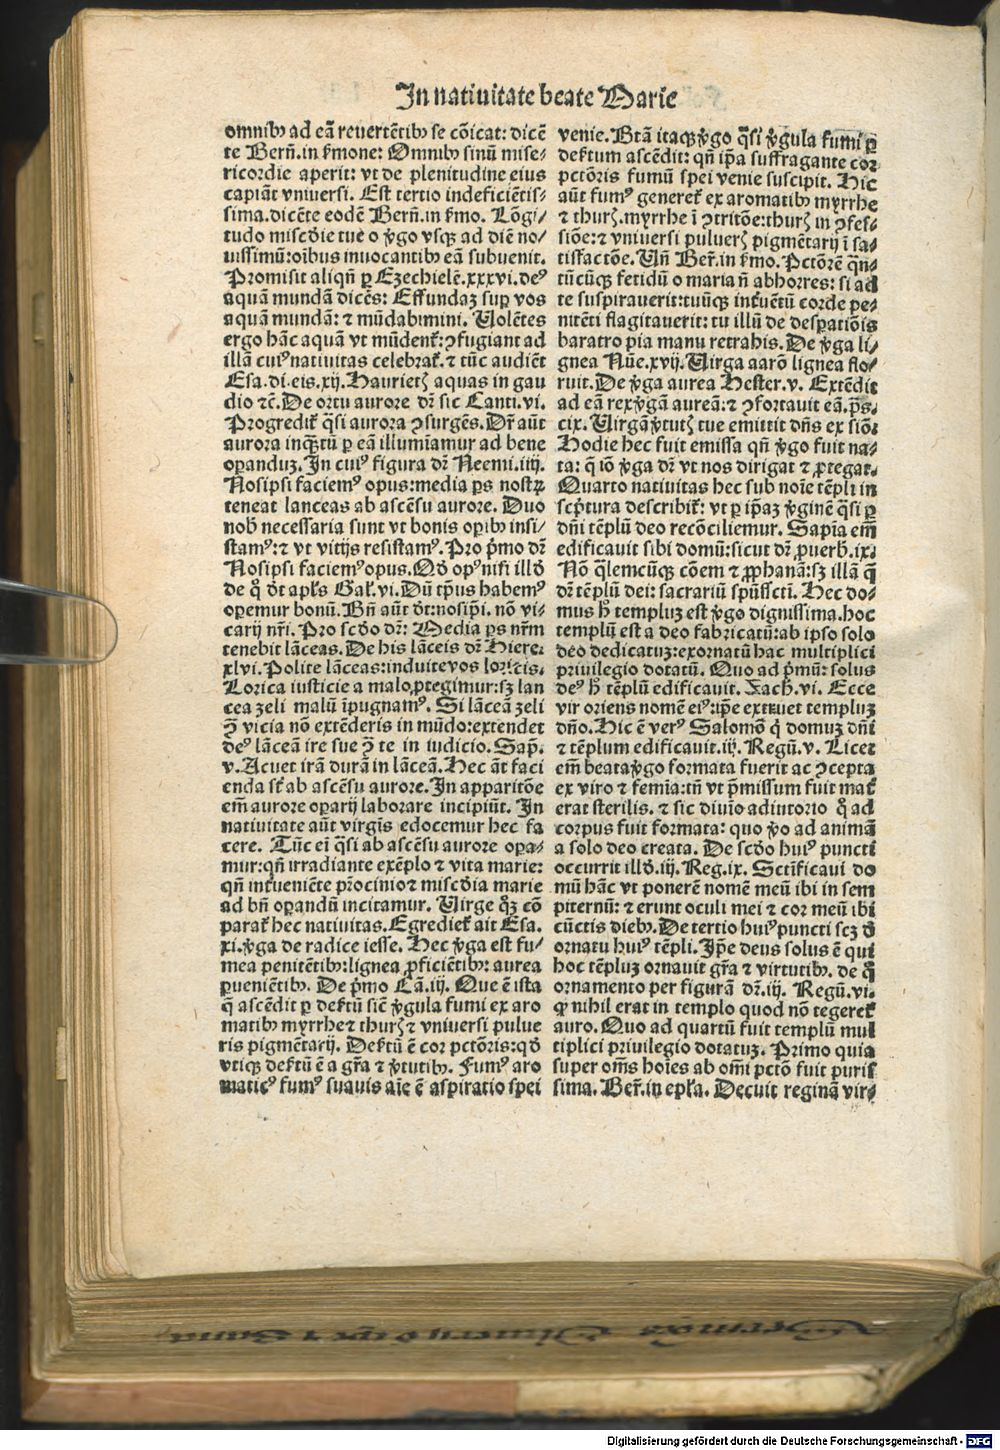 In natiuitate beate Marie
omnibꝰ ad eā reuertētibꝰ se cōicat: dicē
te Berñ. in ẜmone: Omnibꝰ sinū mise-
ricordie aperit: vt de plenitudine eius
capiāt vniuersi. Est tertio indeficiētis-
sima. dicēte eodē Berñ. in ẜmo. Lōgi/
tudo miscd̄ie tue o v̾go vsqꝫ ad diē no/
uissimū: oībus inuocantibꝰ eā subuenit.
Promisit aliqñ ꝑ Ezechielē. xxxvi. deꝰ
aquā mundā dicēs: Effundaꝫ suꝑ vos
aquā mundā: ⁊ mūdabimini. Uolētes
ergo hāc aquā vt mūdenť: ꝯfugiant ad
illā cuiꝰ natiuitas celebrať. ⁊ tūc audiēt
Esa. di. eis. xij. Haurietꝭ aquas in gau
dio ⁊c̄. De ortu aurore dr̄ sic Canti. vi.
Progredit᷑ q̄si aurora ꝯsurgēs. Dr̄ aūt
aurora inqꝫtū ꝑ eā illumīamur ad bene
oꝑanduꝫ. In cuiꝰ figura dr̄ Neemi. iiij.
Nosipsi faciemꝰ opus: media ꝑs nostrꝝ
teneat lanceas ab ascēsu aurore. Duo
nob̄ necessaria sunt vt bonis oꝑibꝰ insi/
stamꝰ: ⁊ vt vitijs resistamꝰ. Pro p̾mo dr̄
Nosipsi faciemꝰ opus. Qd̄ opꝰ nisi illd̄
de q̊ d̄t apl̄s Gaľ. vi. Dū tp̄us habemꝰ
oꝑemur bonū. Bñ aūt d̄t: nosip̄i. nō vi-
carij nr̄i. Pro scd̄o dr̄: Media ꝑs nr̄m
tenebit lāceas. De his lāceis dr̄ Hiere.
xlvi. Polite lāceas: induite vos loricis.
Lorica iusticie a malo ꝓtegimur: sꝫ lan
cea zeli malū īpugnamꝰ. Si lāceā zeli
ꝯ̄ vicia nō extēderis in mūdo: extendet
deꝰ lāceā ire sue ꝯ̄ te in iudicio. Sap̄.
v. Acuet irā durā in lāceā. Hec āt faci
enda sť ab ascēsu aurore. In apparitōe
em̄ aurore oꝑarij laborare incipiūt. In
natiuitate aūt virgīs edocemur hec fa
cere. Tūc ei q̄si ab ascēsu aurore oꝑa-
mur: qñ irradiante exēplo ⁊ vita marie:
qñ inťueniēte p̄rocinio ⁊ miscd̄ia marie
ad bñ oꝑandū incitamur. Uirge q̊ꝫ cō
parať hec natiuitas. Egredieť ait Esa.
xi. v̾ga de radice iesse. Hec v̾ga est fu/
mea penitētibꝰ: lignea ꝓficiētibꝰ: aurea
ꝑuenietibꝰ. De p̾mo Cā. iij. Que ē ista
q̄ ascēdit ꝑ deẜtū sic̄ v̾gula fumi ex aro
matibꝰ myrrhe ⁊ thurꝭ ⁊ vniuersi pulue
ris pigmētarij. Deẜtū ē cor pctōris: qd̄
vtiqꝫ deẜtū ē a gr̄a ⁊ v̾tutibꝰ. Fumꝰ aro
maticꝰ fumꝰ suauis aīe ē aspiratio spei
venie. Btā itaqꝫ v̾go q̄si v̾gula fumi ꝑ
deẜtum ascēdit: qñ ip̄a suffragante cor
pctōris fumū spei venie suscipit. Hic
aūt fumꝰ genereť ex aromatibꝰ myrrhe
⁊ thurꝭ. myrrhe ī ꝯtritōe: thurꝭ in ꝯfes-
siōe: ⁊ vniuersi puluerꝭ pigmētarij ī sa-
tisfactōe. Uñ Ber̄. in ẜmo. Pctōrē q̄n-
tūcūqꝫ fetidū o maria nō abhorres: si ad
te suspirauerit: tuūqꝫ inťuētū corde pe-
nitēti flagitauerit: tu illū de desꝑatiōis
baratro pia manu retrahis. De v̾ga li/
gnea Nūe. xvij. Uirga aarō lignea flo-
ruit. De v̾ga aurea Hester. v. Extēdit
ad eā rex v̾gā aureā: ⁊ ꝯfortauit eā. ps̄.
cix. Uirgā v̾tutꝭ tue emittit dn̄s ex siō.
Hodie hec fuit emissa qñ v̾go fuit na-
ta: q̄ iō v̾ga dr̄ vt nos dirigat ⁊ ꝓtegat.
Quarto natiuitas hec sub noīe tēpli in
scp̄tura describiť: vt ꝑ ip̄aꝫ v̾ginē q̄si ꝑ
dn̄i tēplū deo recōciliemur. Sapīa em̄
edificauit sibi domū: sicut dr̄ ꝓuerb̄. ix.
Nō q̄lemcūqꝫ cōem ⁊ ꝓphanā: sꝫ illā q̄
dr̄ tēplū dei: sacrariū sp̄ūssc̄ti. Hec do-
mus h̄ templuꝫ est v̾go dignissima. hoc
templū est a deo fabricatū: ab ipso solo
deo dedicatuꝫ: exornatū hac multiplici
priuilegio dotatū. Quo ad p̾mū: solus
deꝰ h̄ tēplū edificauit. Zach̄. vi. Ecce
vir oriens nomē eiꝰ: ip̄e extruet templuꝫ
dn̄o. Hic ē verꝰ Salomō q̾ domuꝫ dn̄i
⁊ tēplum edificauit. iij. Regū. v. Licet
em̄ beata v̾go formata fuerit ac ꝯcepta
ex viro ⁊ femīa: tn̄ vt p̄missum fuit mať
erat sterilis. ⁊ sic diuīo adiutorio q̊ ad
corpus fuit formata: quo v̊o ad animā
a solo deo creata. De scd̄o huiꝰ puncti
occurrit illd̄. iij. Reg. ix. Sctificaui do
mū hāc vt ponerē nomē meū ibi in sem
piternū: ⁊ erunt oculi mei ⁊ cor meū ibi
cūctis diebꝰ. De tertio huiꝰ puncti scꝫ d̄
ornatu huiꝰ tēpli. Ip̄e deus solus ē qui
hoc tēpluꝫ ornauit gr̄a ⁊ virtutibꝰ. de q̊
ornamento per figurā dr̄. iij. Regū. vi.
ꝙ nihil erat in templo quod nō tegereť
auro. Quo ad quartū fuit templū mul
tiplici priuilegio dotatuꝫ. Primo quia
super om̄s hoīes ab om̄i pctō fuit puris
sima. Ber̄. in epľa. Decuit reginā vir-
Digitalisierung gefördert durch die Deutsche Forschungsgemeinschaft - DFG